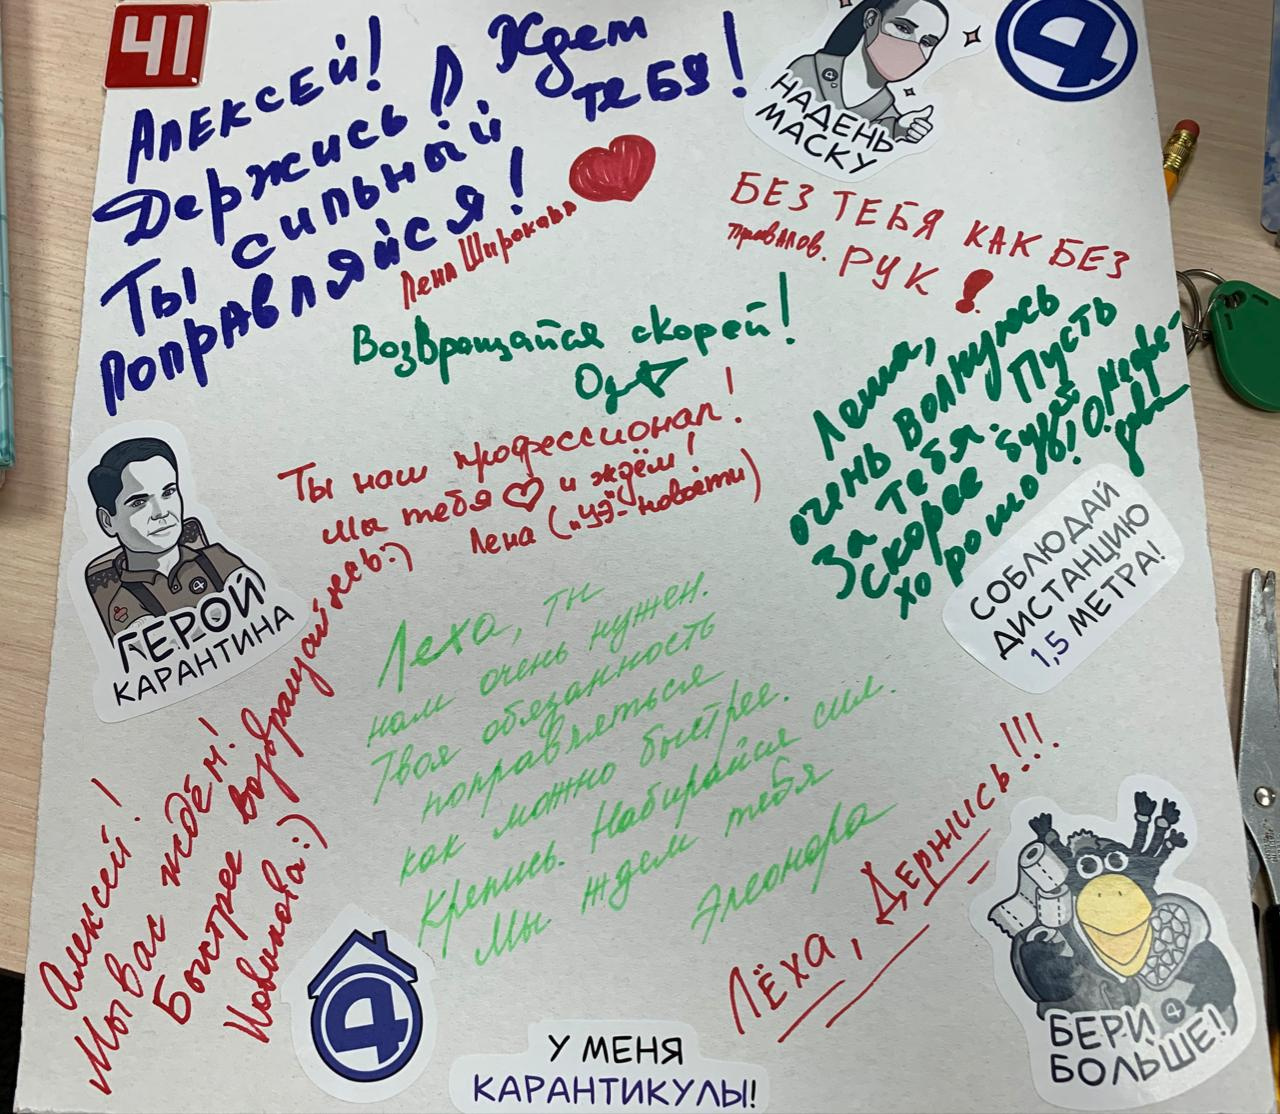 41
Алексей!
Держись!
Ты сильный
поправляйся!
Ждем
тебя!
Лена Широкова
4
НАДЕНЬ
МАСКУ
БЕЗ ТЕБЯ КАК БЕЗ
РУК!
Возвращайся скорей!
Ты наш профессионал!
Мы тебя ♡ и ждём!
Лена („Ч3"-новости)
Леша,
очень волнуюсь
за тебя. Пусть
скорее будет
хорошо! О. Медве-
дева
ГЕРОЙ
КАРАНТИНА
СОБЛЮДАЙ
ДИСТАНЦИЮ
1,5 МЕТРА!
Леха, ты
нам очень нужен.
Твоя обязанность
поправляться
как можно быстрее.
Крепись. Набирайся сил.
Мы ждем тебя
Элеонора
Алексей!
Мы Вас ждём!
Быстрее возвращайтесь:)
Новикова:)
Лёха, Держись!!!
4
У МЕНЯ
КАРАНТИКУЛЫ!
БЕРИ
БОЛЬШЕ!